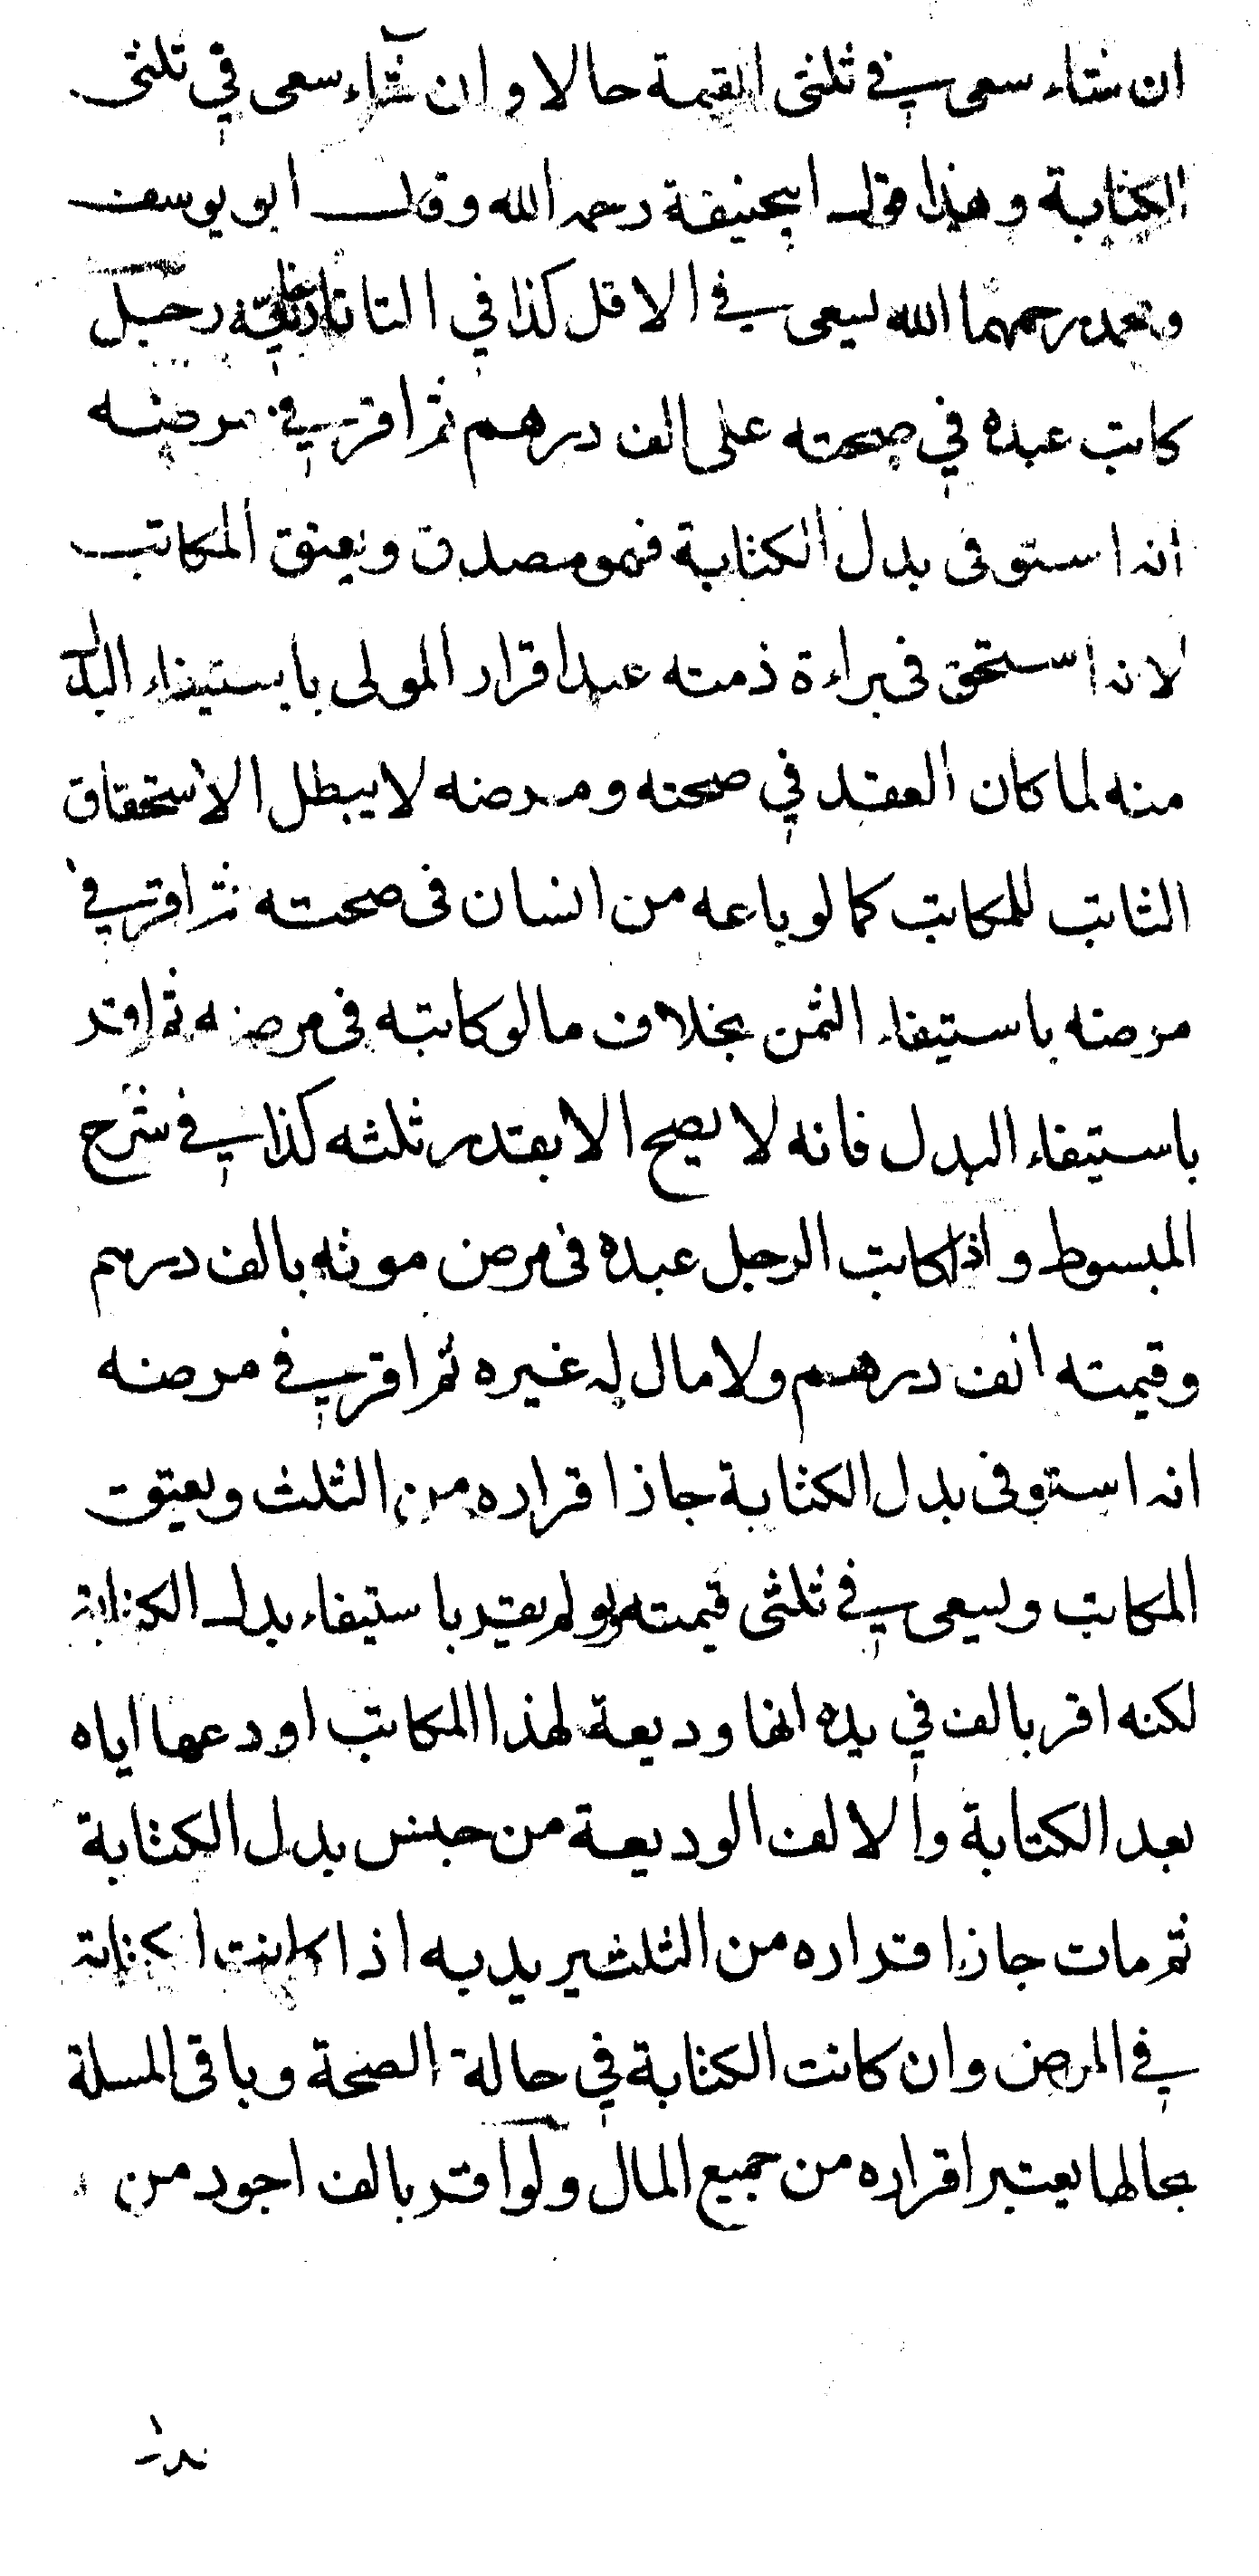 ان شاء سعى في ثلثى القيمة حالا وان شاء سعى في ثلثى
الكتابة وهذا قول ابيحنيفة رحمه الله وقال ابو يوسف
ومحمد رحمهما الله يسعى في الاقل كذا في التاتارخانية رجل
كاتب عبده في صحته على الف درهم ثم اقر في مرضه
انه استوفى بدل الكتابة فهو مصدق ويعتق المكاتب
لانه استحق في براءة ذمته عند اقرار المولى باستيفاء البدل
منه لما كان العقد في صحته ومرضه لا يبطل الاستحقاق
الثابت للمكاتب كما لو باعه من انسان في صحته ثم اقر في
مرضه باستيفاء الثمن بخلاف ما لو كاتبه في مرضه ثم اقر
باستيفاء البدل فانه لا يصح الا بقدر ثلثه كذا في شرح
المبسوط واذا كاتب الرجل عبده في مرض موته بالف درهم
وقيمته الف درهم ولا مال له غيره ثم اقر في مرضه
انه استوفى بدل الكتابة جاز اقراره من الثلث ويعتق
المكاتب ويسعى في ثلثى قيمته ولو لم يقر باستيفاء بدل الكتابة
لكنه اقر بالف في يده انها وديعة لهذا المكاتب اودعها اياه
بعد الكتابة والالف الوديعة من جنس بدل الكتابة
ثم مات جاز اقراره من الثلث يريد به اذا كانت الكتابة
في المرض وان كانت الكتابة في حالة الصحة وباقى المسلة
بحالها يعتبر اقراره من جميع المال ولو اقر بالف اجود من
بدل